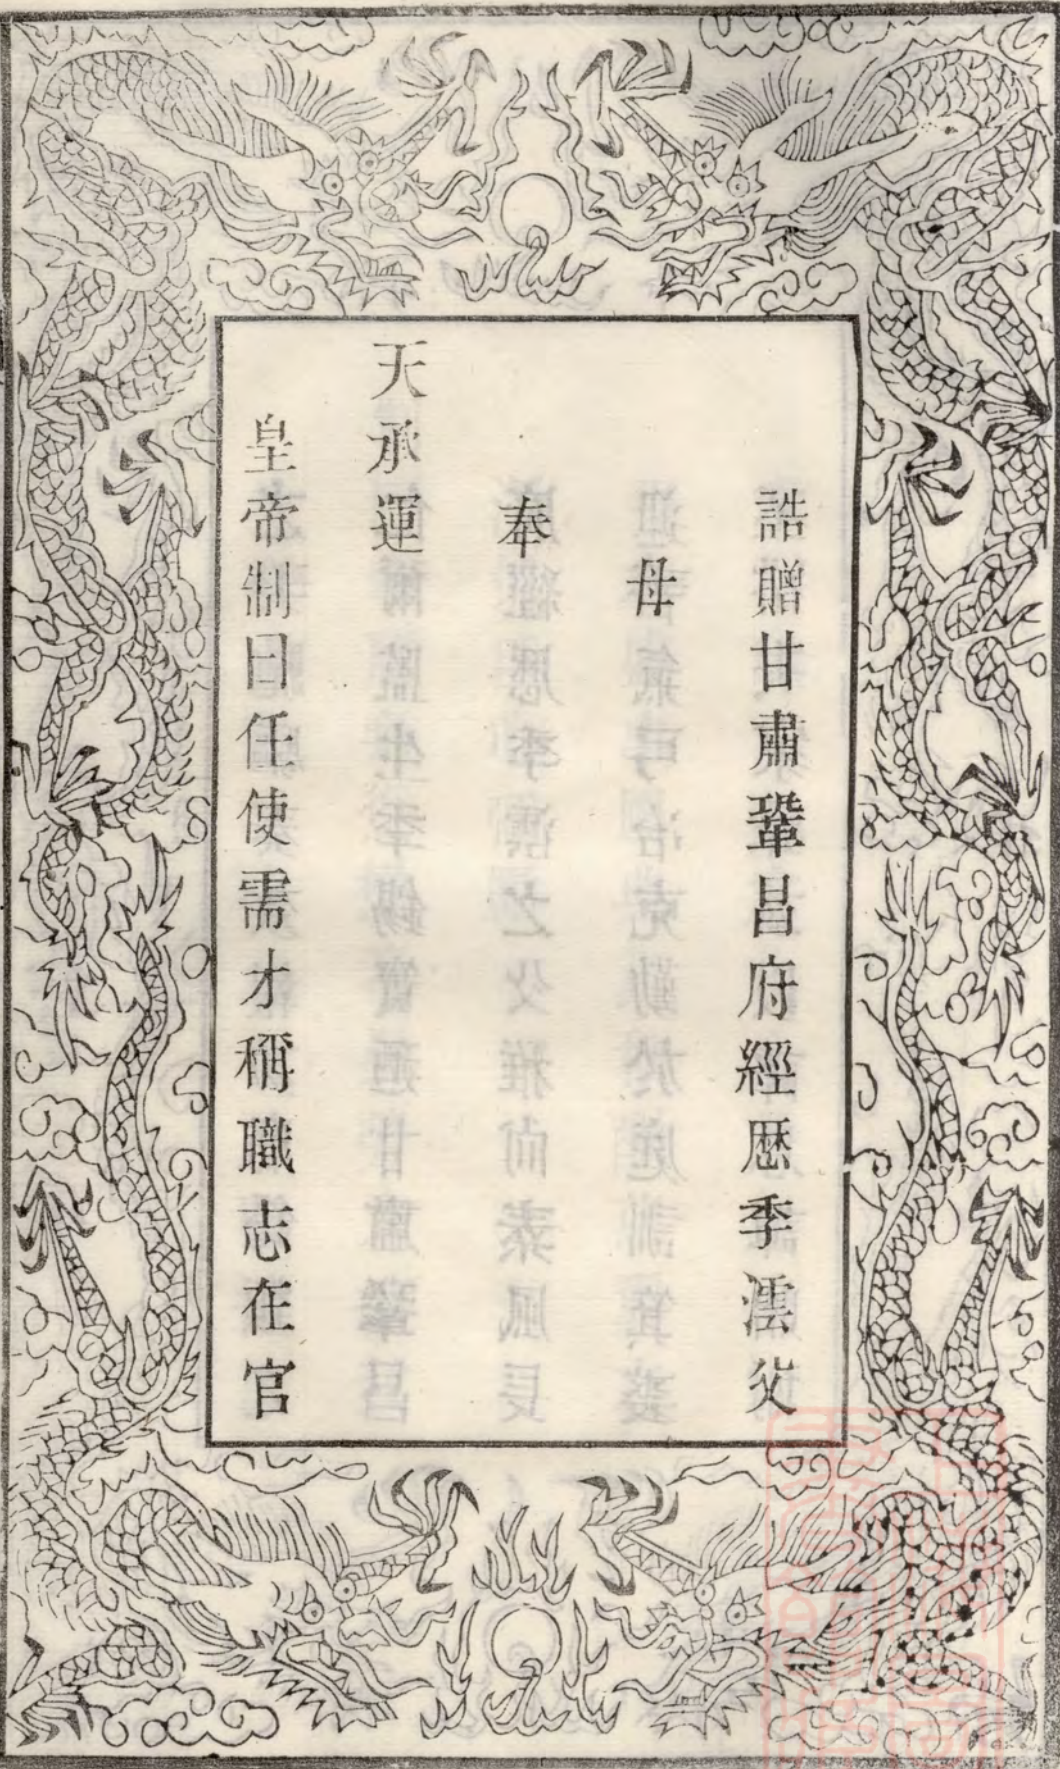 誥贈甘肅鞏昌府經歷季澐父
母
奉
天承運
皇帝制曰任使需才稱職志在官